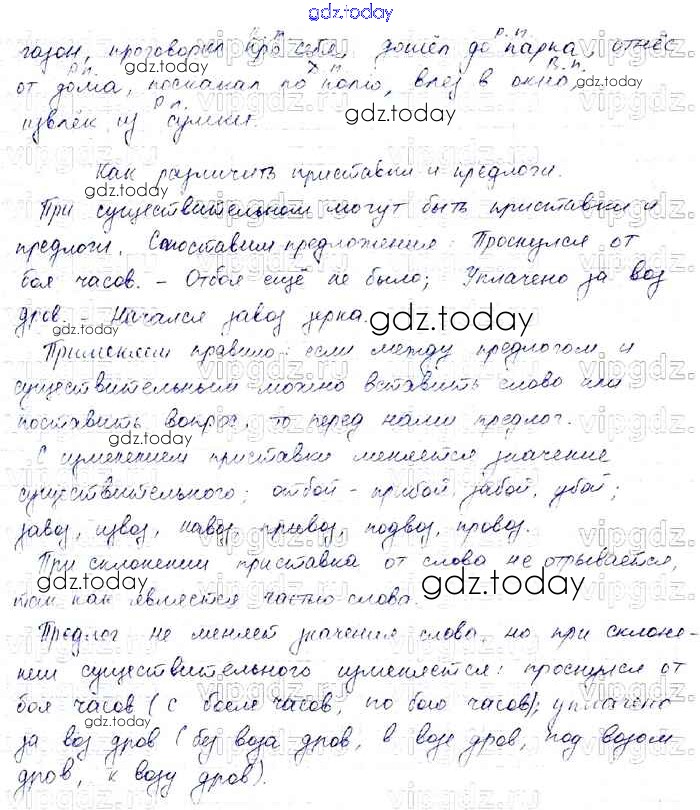 gdz.today
газон, проговорил про себя, дошёл до парка, отнёс
от дома, поскакал по полю, влез в окно,
извлёк из сумки.
Как различить приставки и предлоги.
При существительном могут быть приставки и
предлоги. Сопоставим предложения: Проснулся от
боя часов. – Отбоя ещё не было; Уплачено за воз
дров. – Начался завоз зерна.
Применим правило: если между предлогом и
существительным можно вставить слово или
поставить вопрос, то перед нами предлог.
С изменением приставки меняется значение
существительного: отбой – прибой, забой, убой;
завоз, извоз, навоз, привоз, подвоз, провоз.
При склонении приставка от слова не отрывается,
так как является частью слова.
Предлог не меняет значения слова, но при склоне-
нии существительного изменяется: проснулся от
боя часов (с боем часов, по бою часов); уплачено
за воз дров (без воза дров, в возе дров, под возом
дров, к возу дров).